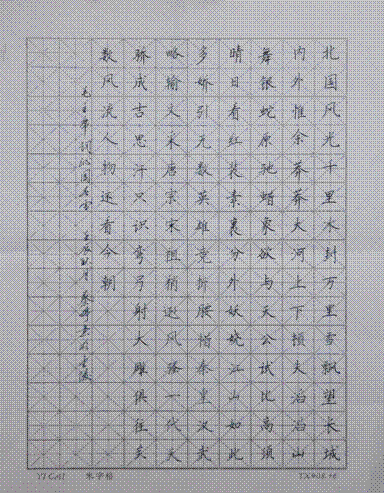 北国风光千里冰封万里雪飘望长城
内外惟余莽莽大河上下顿失滔滔山
舞银蛇原驰蜡象欲与天公试比高须
晴日看红装素裹分外妖娆江山如此
多娇引无数英雄竞折腰惜秦皇汉武
略输文采唐宗宋祖稍逊风骚一代天
骄成吉思汗只识弯弓射大雕俱往矣
数风流人物还看今朝
毛主席词沁园春雪
米字格